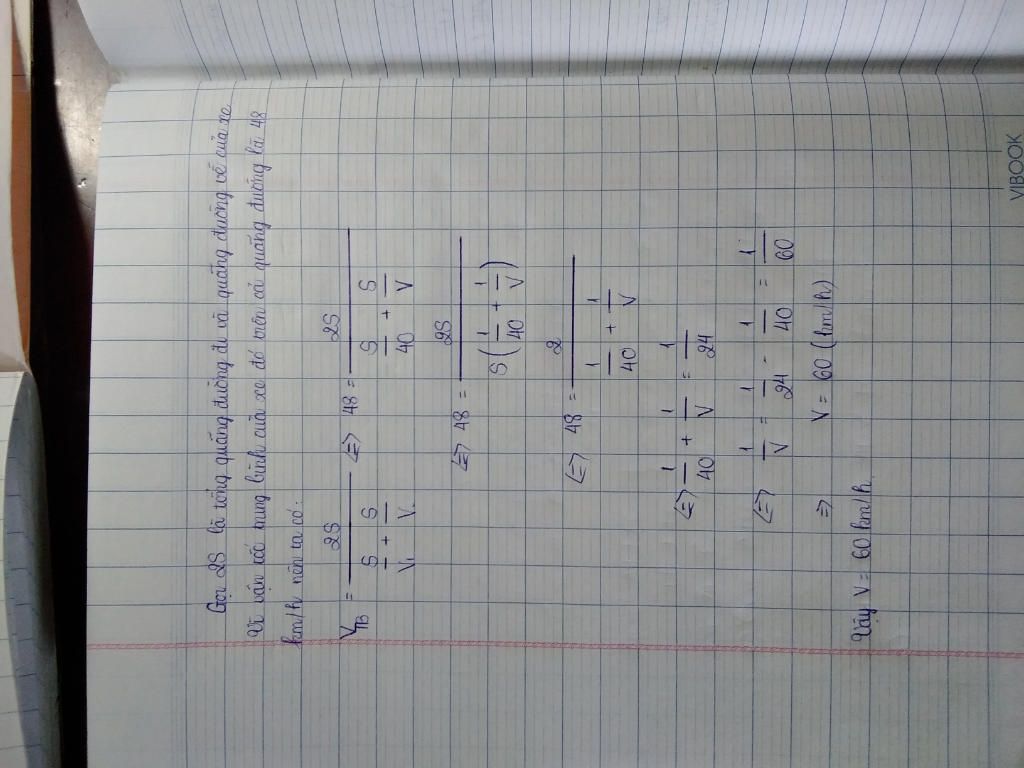 Gọi 2S là tổng quãng đường đi và quãng đường về của xe
Vì vận tốc trung bình của xe đó trên cả quãng đường là 48
km/h nên ta có:
V_TB = 2S / (S/V₁ + S/V) <=> 48 = 2S / (S/40 + S/V)
<=> 48 = 2S / (S(1/40 + 1/V))
<=> 48 = 2 / (1/40 + 1/V)
<=> 1/40 + 1/V = 1/24
<=> 1/V = 1/24 - 1/40 = 1/60
=> V = 60 (km/h)
Vậy V = 60 km/h.
VIBOOK